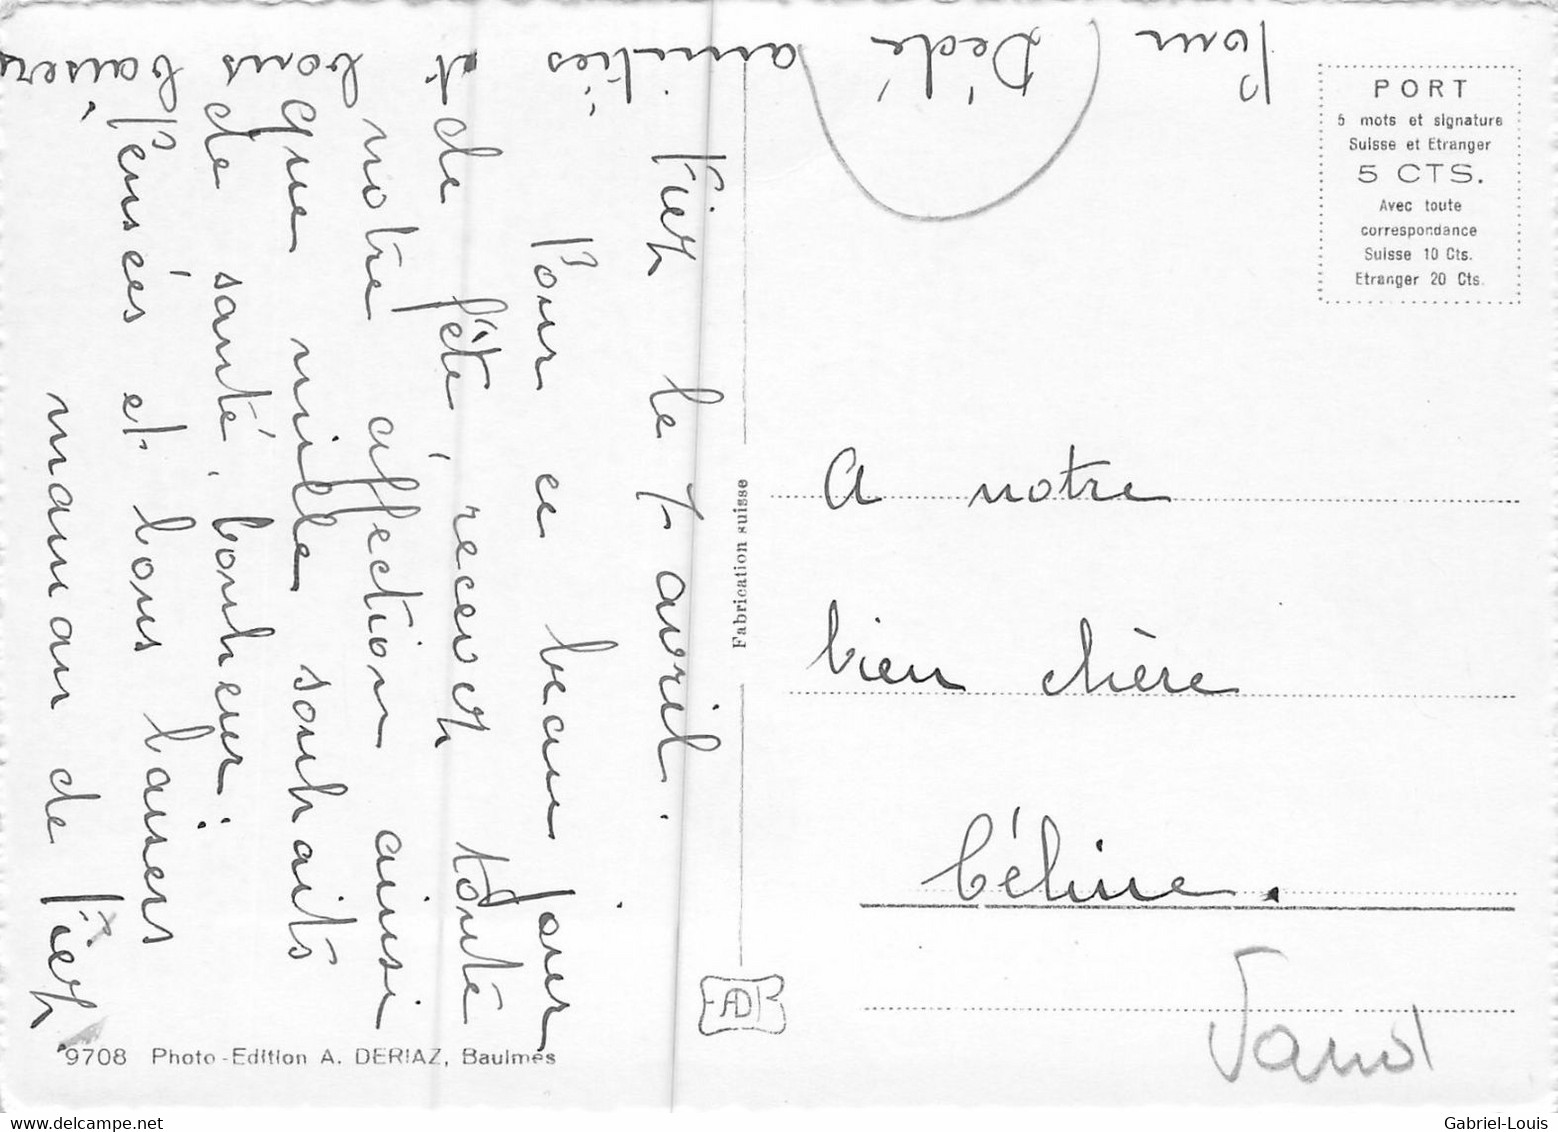 Viez le 7 avril.
Pour ce beau jour
de fêté, recevez toute
notre affection ainsi
que mille souhaits
de santé, bonheur:
Pensées et bons baisers
maman de Viez
Pour Dédé amitiés et bons baisers
A notre
bien chère
Céline.
Vaud
PORT
5 mots et signature
Suisse et Etranger
5 CTS.
Avec toute
correspondance
Suisse 10 Cts.
Etranger 20 Cts.
Fabrication suisse
AD
9708 Photo-Edition A. DERIAZ, Baulmes
Gabriel-Louis